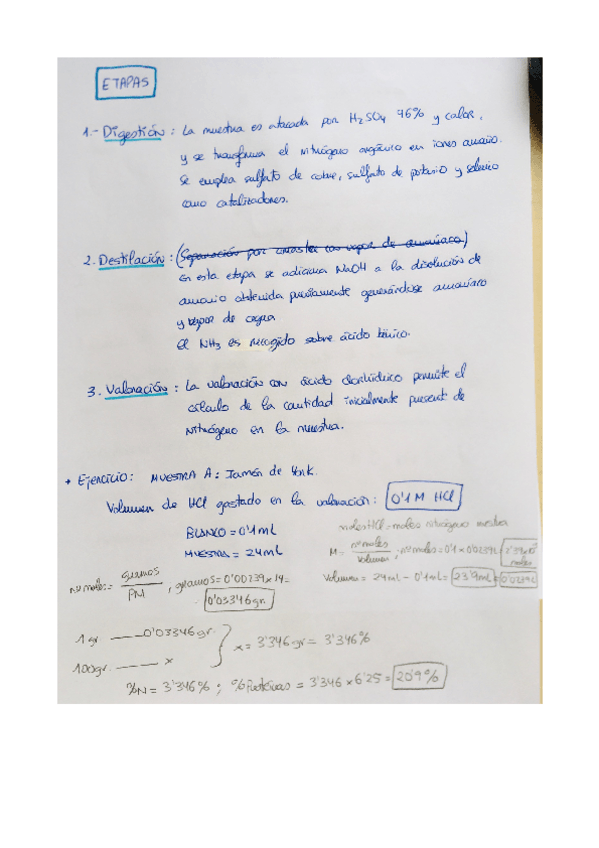 ETAPAS
1.- Digestión: La muestra es atacada por H2SO4 96% y calor,
y se transforma el nitrógeno orgánico en iones amonio.
Se emplea sulfato de cobre, sulfato de potasio y selenio
como catalizadores.
2. Destilación: (Separación por arrastre con vapor de amoniaco)
En esta etapa se adiciona NaOH a la disolución de
amonio obtenida previamente generándose amoniaco
y vapor de agua
El NH3 es recogido sobre ácido bórico.
3. Valoración: La valoración con ácido clorhídrico permite el
cálculo de la cantidad inicialmente present de
nitrógeno en la muestra.
+ Ejercicio: MUESTRA A: Jamón de York.
Volumen de HCl gastado en la valoración: 0'1 M HCl
BLANCO = 0'1 mL
MUESTRA = 24 mL
moles HCl = moles nitrógeno muestra
M = nº moles / Volumen, nº moles = 0'1 x 0'0239L = 2'39x10 moles
Volumen = 24 mL - 0'1 mL = 23'9 mL = 0'0239L
nº moles = gramos / PM, gramos = 0'00239 x 14 =
0'03346 gr.
1 gr —— 0'03346 gr.
100 gr. —— x
x = 3'346 gr = 3'346%
%N = 3'346%; % Proteínas = 3'346 x 6'25 = 20'9%